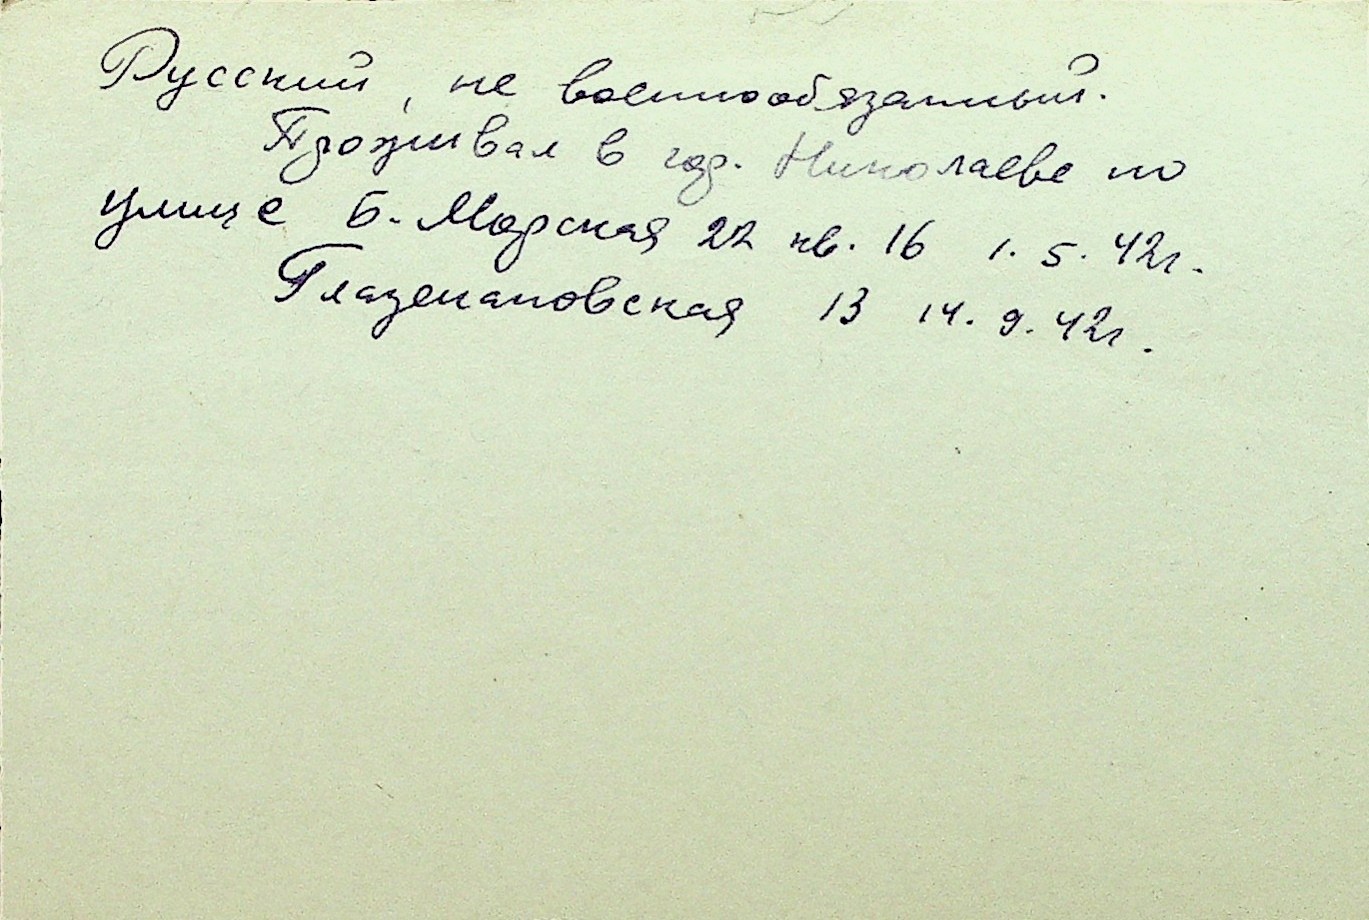 Русский, не военнообязанный.
Проживал в гор. Николаеве по
улице Б. Морская 22 кв. 16 1.5.42г.
Глазенаповская 13 14.9.42г.